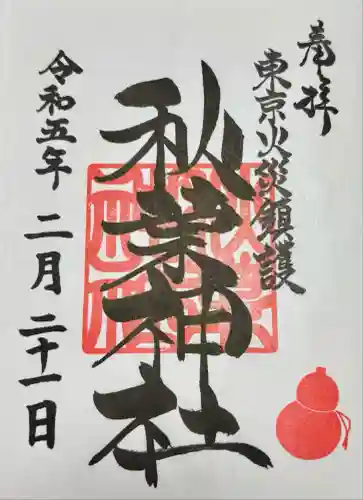 奉拝
東京火災鎮護
秋葉神社
令和五年 二月 二十一日